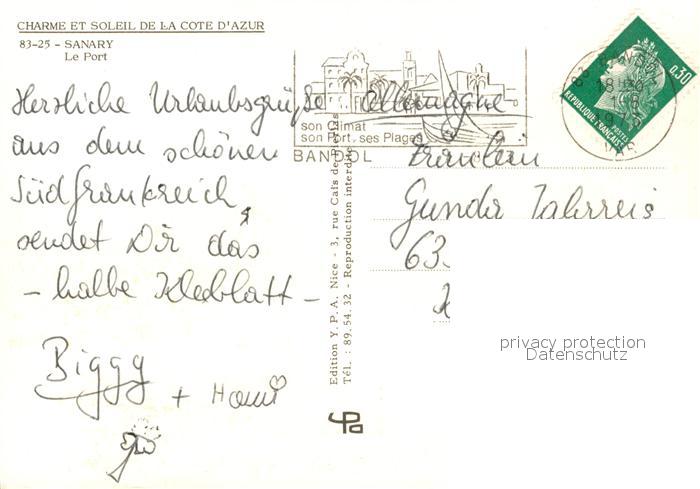 CHARME ET SOLEIL DE LA COTE D'AZUR
83-25 - SANARY
Le Port
Herzliche Urlaubsgrüße
aus dem schönen
Südfrankreich
sendet Dir das
- halbe Kleeblatt -
Biggy
+ Hansi
son climat
son port, ses Plages
BANDOL
0,30
REPUBLIQUE FRANCAISE
POSTES
18H
Edition Y. P. A. Nice - 3, rue Cafs des Prés
Tél. : 89.54.32 - Reproduction interdite
Allemagne
Fräulein
Gunda Jahrreis
63.
privacy protection
Datenschutz